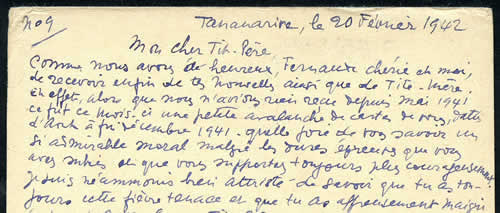 No 9
Tananarive, le 20 Février 1942
Mon cher Tit-Père,
Comme nous avons été heureux, Fernande chérie et moi,
de recevoir enfin de tes nouvelles ainsi que de Tite-Mère.
En effet, alors que nous n'avions rien reçu depuis mai 1941
ce fut ce mois-ci une petite avalanche de cartes de vous, datées
d'Août à fin décembre 1941 - quelle joie de vous savoir un
si admirable moral malgré les dures épreuves que vous
avez subies et que vous supportez toujours plus courageusement
je suis néammoins bien attristé de savoir que tu as tou-
jours cette fièvre tenace et que tu as affreusement maigri